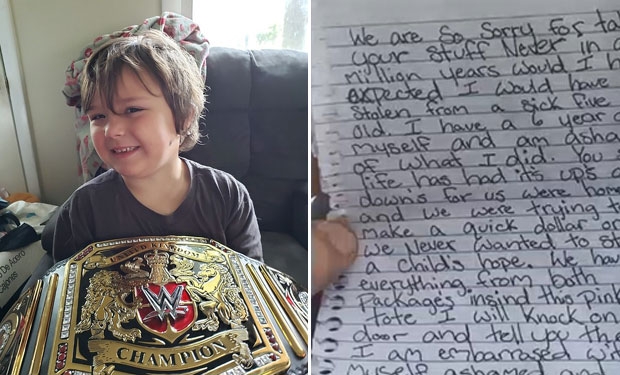 W
CHAMPION
De Acero
We are so sorry for ta
your stuff Never in a
million years would I h
expected I would have
stolen from a sick five
old. I have a 6 year
myself and am asha
of what I did. You
life has had it's up's
down's for us were hom
and we were trying t
make a quick dollar or
we Never wanted to st
a child's hope. We hav
everything from both
Packages insind two Pink
tote I will knock on
door and tell you the
I am embarrased wi
myself ashamed and